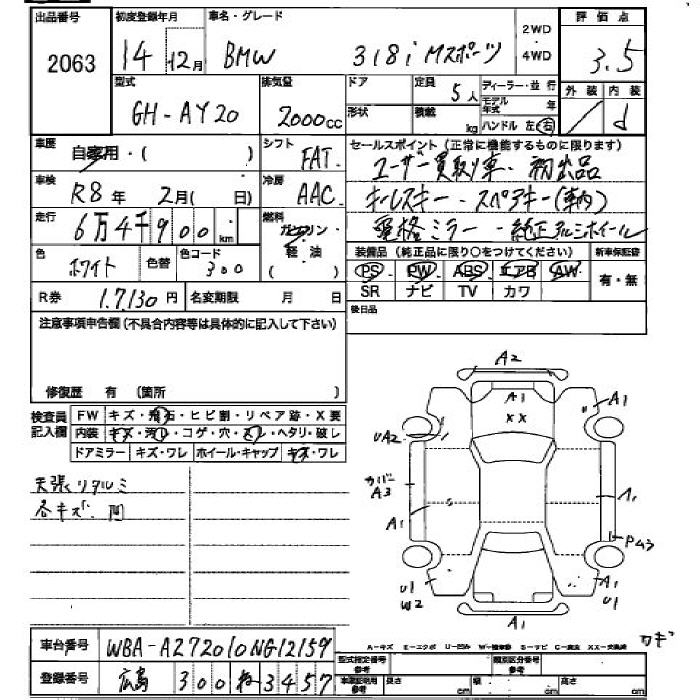 出品番号 初度登録年月 車名・グレード 評価点
2063 14 12月 BMW 318i Mスポーツ 2WD ・ 4WD 3.5
型式 排気量 ドア 定員 5人 ディーラー・並行 外装 内装
GH-AY20 2000cc 形状 積載 kg モデル年式 年 ハンドル 左・右 d
車歴 自家用・( ) シフト FAT セールスポイント(正常に機能するものに限ります)
ユーザー買取り車・初出品
車検 R8年 2月( 日) 冷房 AAC キーレスキー・スペアキー(車内)
走行 6万4千900km 燃料 ガソリン・軽油( ) 電格ミラー・純正アルミホイール
色 ホワイト 色替 色コード 300 装備品(純正品に限り○をつけてください) 新車保証書
PS PW ABS エアB AW 有・無
R券 17,130円 名変期限 月 日 SR ナビ TV カワ
注意事項申告欄(不具合内容等は具体的に記入して下さい) 後日品
修復歴 有 (箇所 )
検査員記入欄 FW キズ・飛石・ヒビ割・リペア跡・X要
内装 キズ・汚レ・コゲ・穴・スレ・ヘタリ・破レ
ドアミラー キズ・ワレ ホイール・キャップ キズ・ワレ
天張リタルミ
各キズ、凹
A2
A1
XX
A1
UA2
カバー
A3
A1
A1
U1
W2
A1
A1
U1
カギ
A-キズ E-エクボ U-凹み W-補修跡 S-サビ C-腐食 XX-交換済
車台番号 WBA-AZ72010NG12159 型式指定番号 参考 類別区分番号 参考
登録番号 広島 300 3457 車庫証明用 参考 長さ cm 幅 cm 高さ cm